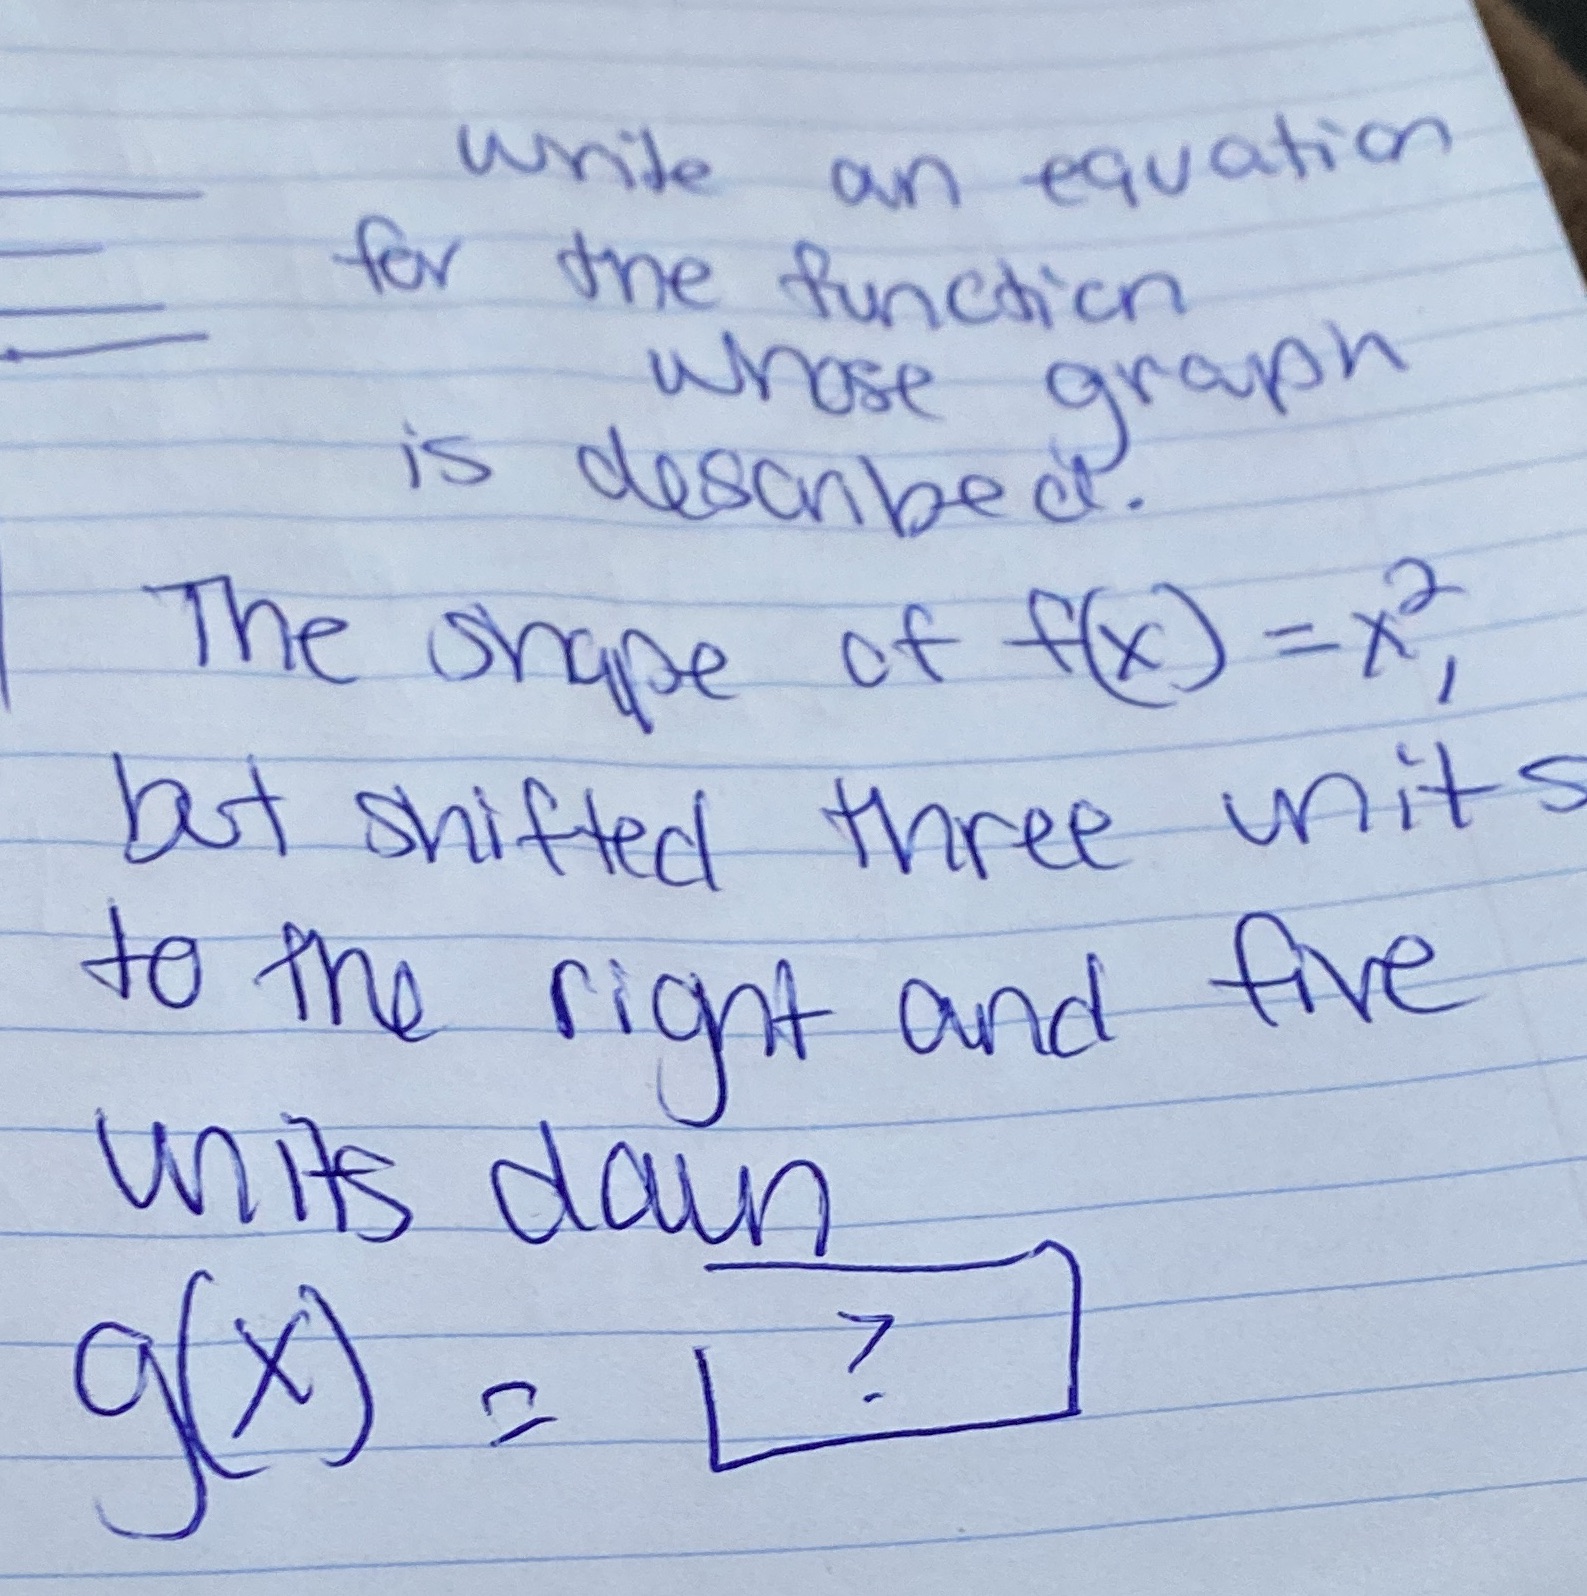 write an equation
for the function
whose graph
is described.
The shape of f(x) = x²,
but shifted three units
to the right and five
units down
g(x) = ?